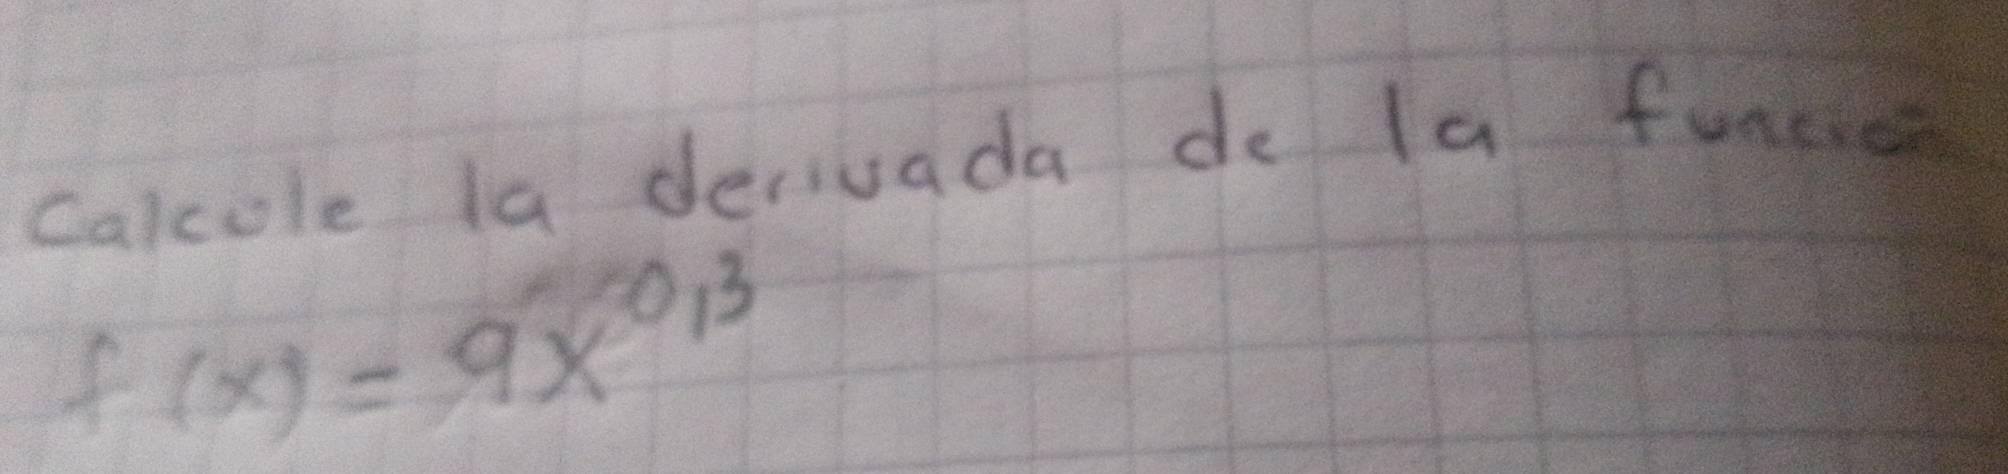 Calcule la derivada de la función
f(x) = 9x^0,3